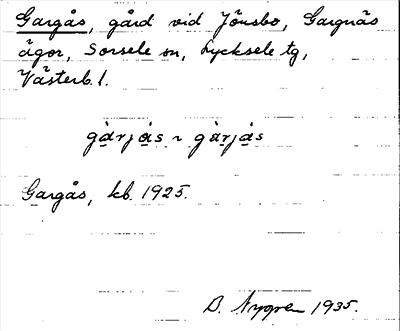 Gargås, gård vid Jönsbo, Gargnäs
ägor, Sorsele sn, Lycksele tg,
Västerb. l.
gàrjås ~ gàrjås
Gargås, kb. 1925.
D. Nygren 1935.